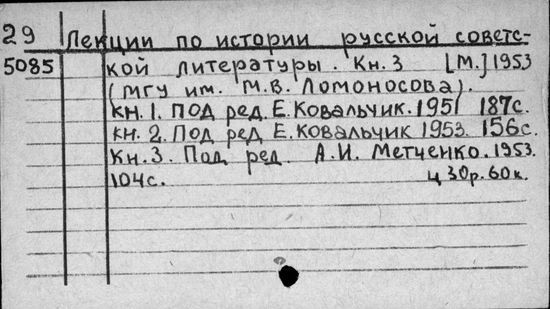 29 Лекции по истории русской советс-
5085 кой литературы. Кн. 3 [М.] 1953
(МГУ им. М.В. Ломоносова).
кн. 1. Под ред. Е. Ковальчик. 1951 187с.
кн. 2. Под ред. Е. Ковальчик 1953. 156с.
Кн. 3. Под ред. А.И. Метченко. 1953.
104с. ц 30р. 60к.